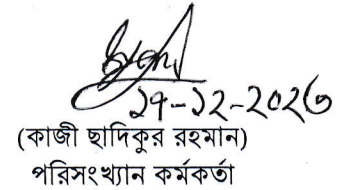 ১৭-১২-২০২৩
(কাজী ছাদিকুর রহমান)
পরিসংখ্যান কর্মকর্তা